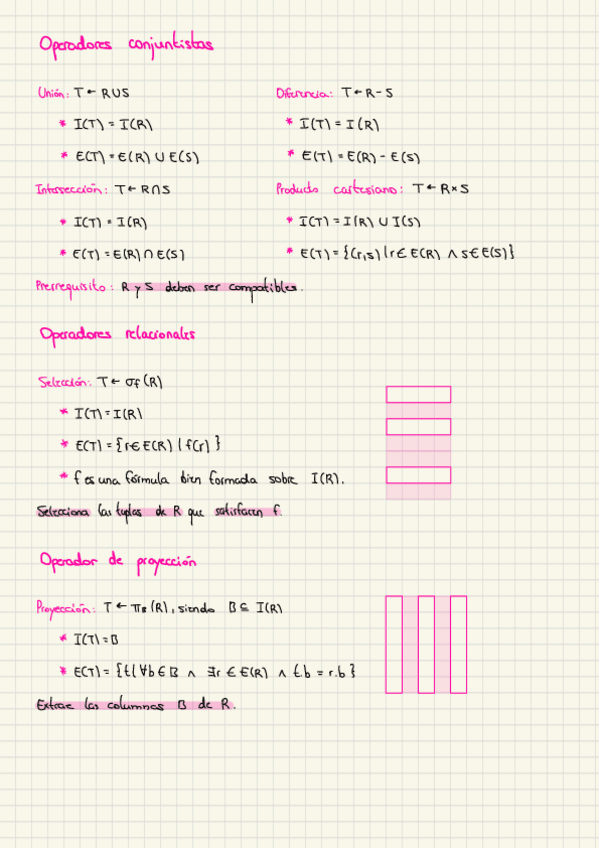 Operadores conjuntistas
Unión: T ← R ∪ S
* I(T) = I(R)
* E(T) = E(R) ∪ E(S)
Diferencia: T ← R - S
* I(T) = I(R)
* E(T) = E(R) - E(S)
Intersección: T ← R ∩ S
* I(T) = I(R)
* E(T) = E(R) ∩ E(S)
Producto cartesiano: T ← R × S
* I(T) = I(R) ∪ I(S)
* E(T) = {(r,s) | r ∈ E(R) ∧ s ∈ E(S)}
Prerrequisito: R y S deben ser compatibles.
Operadores relacionales
Selección: T ← σf (R)
* I(T) = I(R)
* E(T) = {r ∈ E(R) | f(r)}
* f es una fórmula bien formada sobre I(R).
Selecciona las tuplas de R que satisfacen f.
Operador de proyección
Proyección: T ← πB (R), siendo B ⊆ I(R)
* I(T) = B
* E(T) = {t | ∀b ∈ B ∧ ∃r ∈ E(R) ∧ t.b = r.b}
Extrae las columnas B de R.